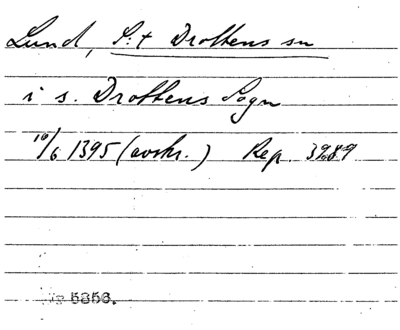 Lund, S:t Drottens sn
i s. Drottens Sogn
10/6 1395 (avskr.) Rep. 3989
5353.